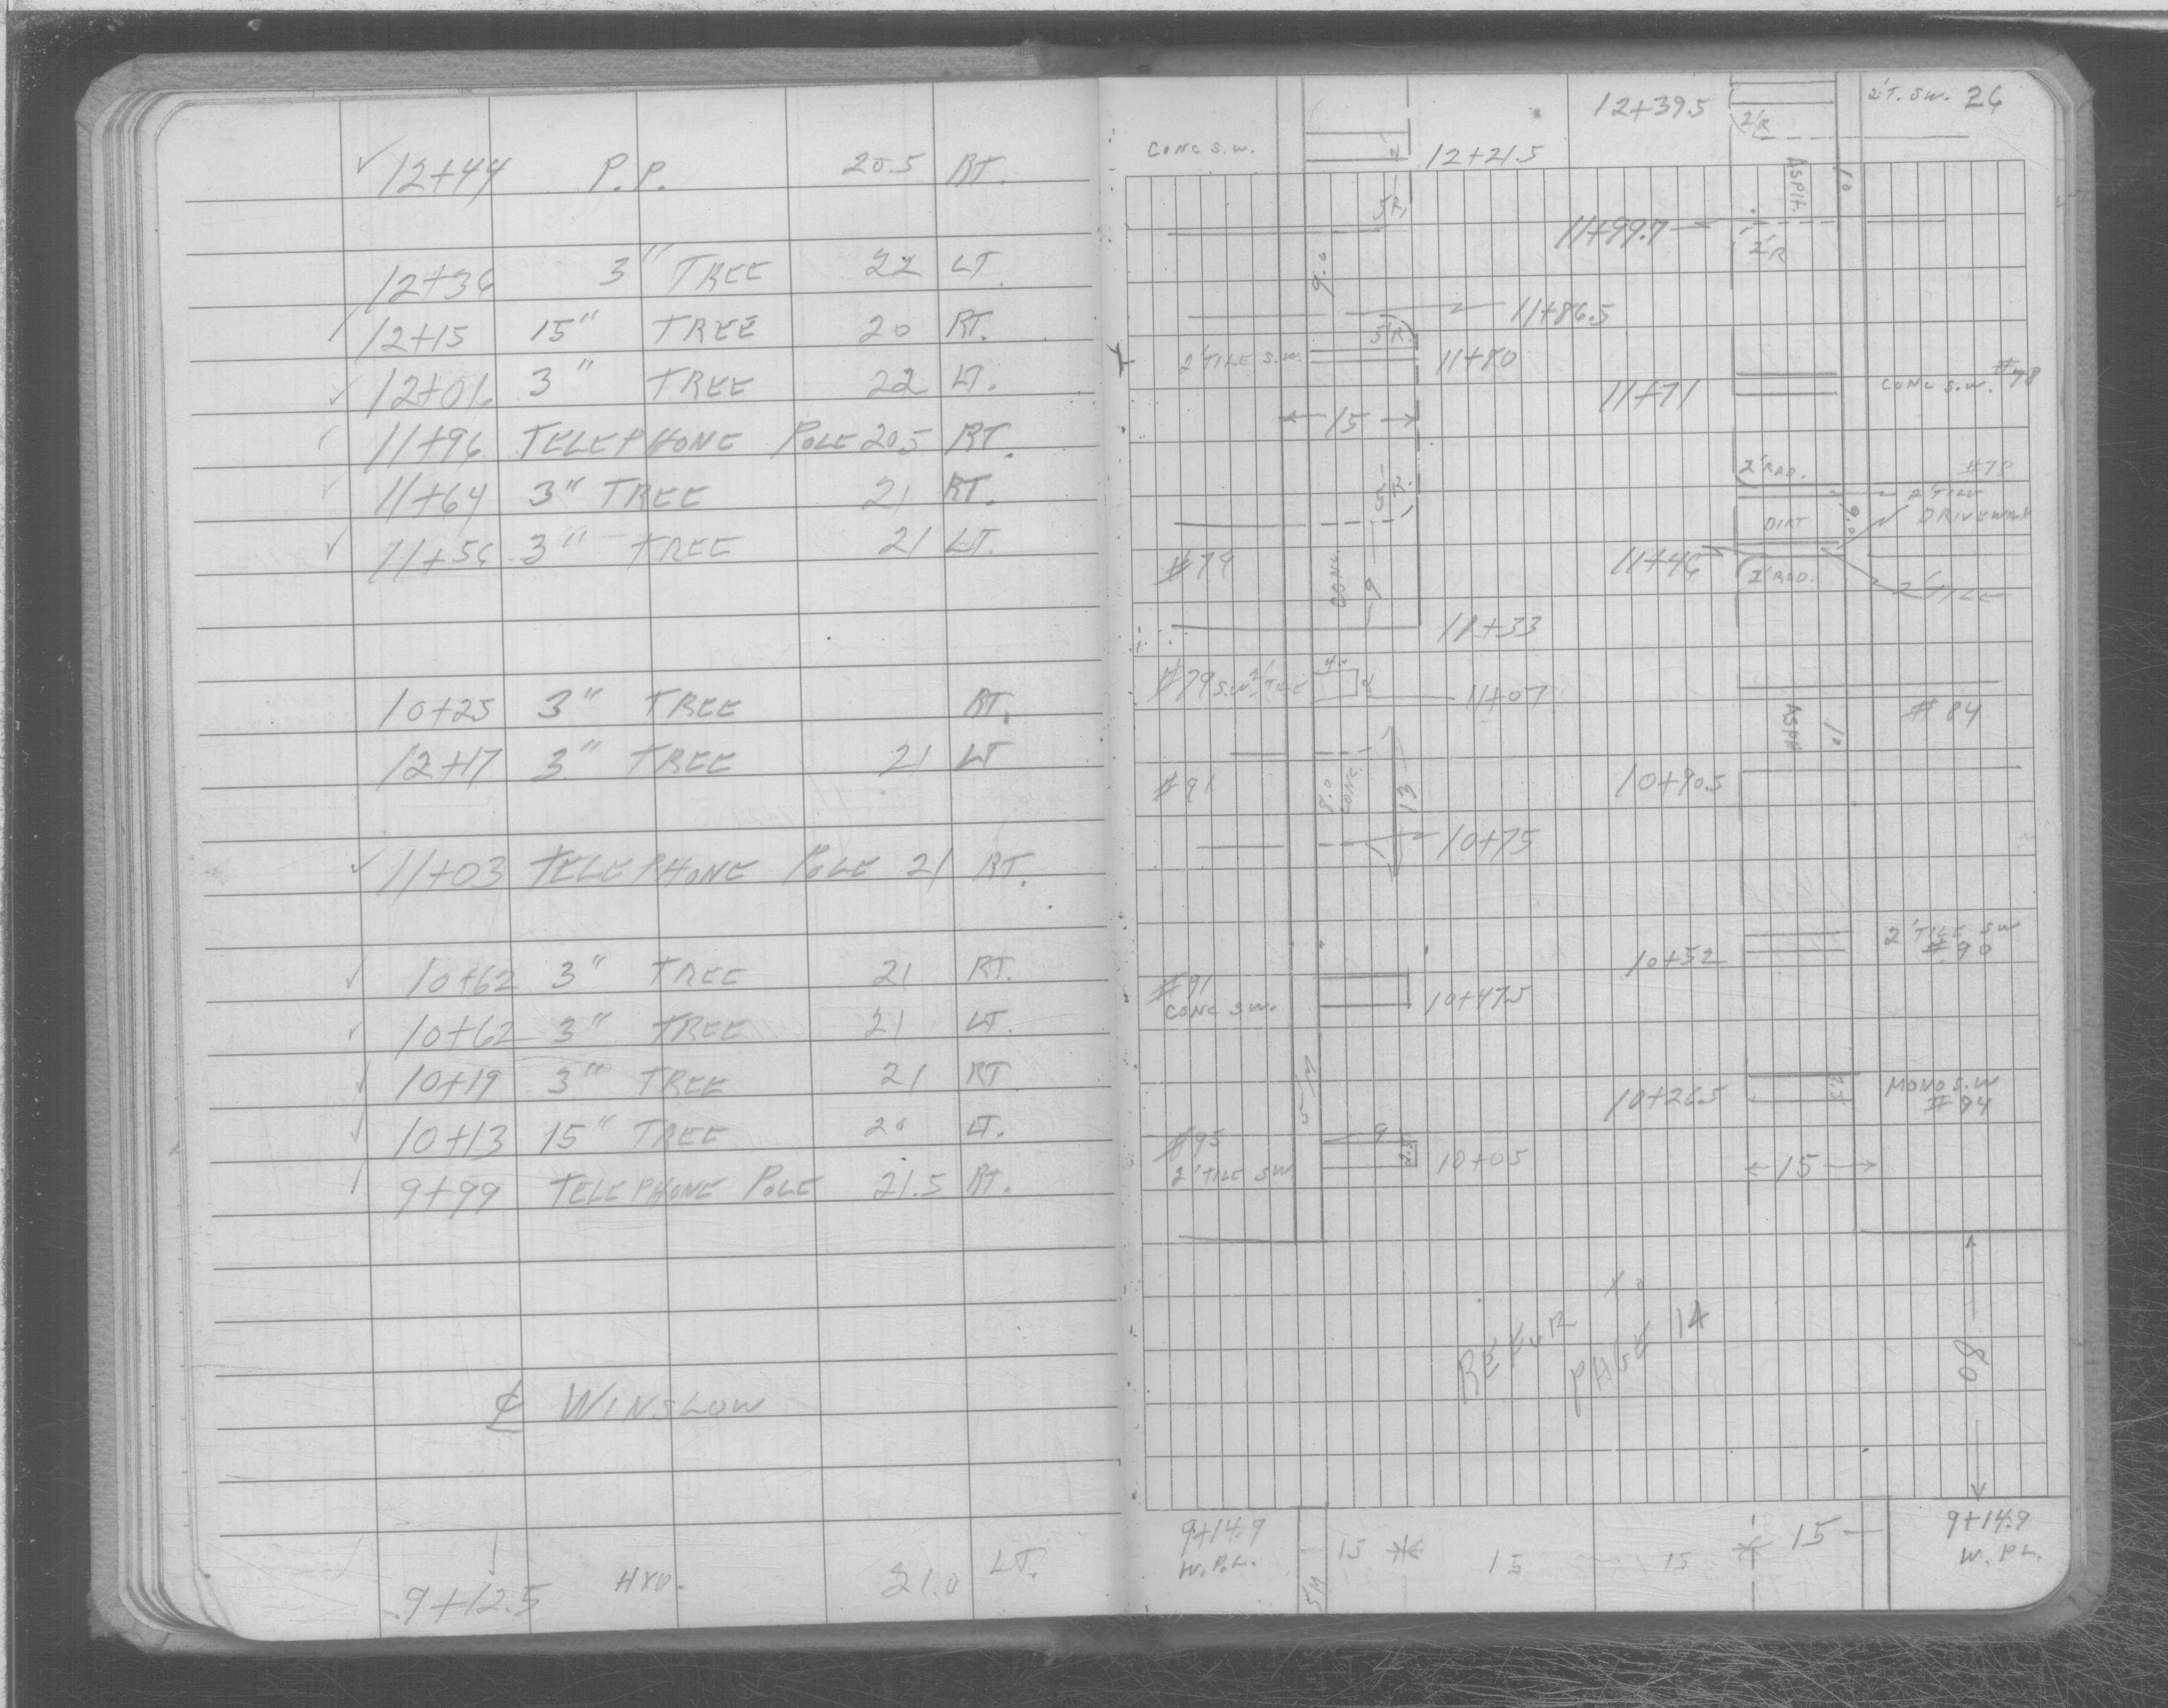 ✓ 12+44 P.P. 20.5 RT.
12+36 3" TREE 22 LT.
12+15 15" TREE 20 RT.
✓ 12+01 3" TREE 22 LT.
11+96 TELEPHONE POLE 20.5 RT.
11+64 3" TREE 21 RT.
✓ 11+56 3" TREE 21 LT.
10+25 3" TREE RT.
12+17 3" TREE 21 LT
✓ 11+03 TELEPHONE POLE 21 RT.
✓ 10+62 3" TREE 21 RT.
✓ 10+62 3" TREE 21 LT.
✓ 10+19 3" TREE 21 RT
✓ 10+13 15" TREE 20 LT.
9+99 TELEPHONE POLE 21.5 RT.
℄ WINSLOW
9+12.5 HYD. 21.0 LT.
12+39.5 2'R 2'T. SW. 26
CONC S.W. 12+21.5
5'R
ASPH. 10
11+99.7 2'R
9.0
11+86.5
5'R.
2' TILE S.W. 11+80
11+71 CONC S.W. #78
15
2' RAD. #78
2' TILE
5'R. DIRT 9.0 DRIVEWAY
#79 CONC. 9 11+46 2' RAD. 2' TILE
11+33
#79 S.W. 2' TILE 4.0 2' 11+07
ASPH 10 #84
#91 8.0 CONC. 13 10+90.5
10+75
2' TILE SW
10+52 #90
#91
CONC SW. 10+47.5
10+26.5 MONO S.W
#94
#95 9
2' TILE SW. 10+05 15
REFER TO
PAGE 14
80
9+14.9 9+14.9
W.P.L. 15 15 15 15 W. PL.